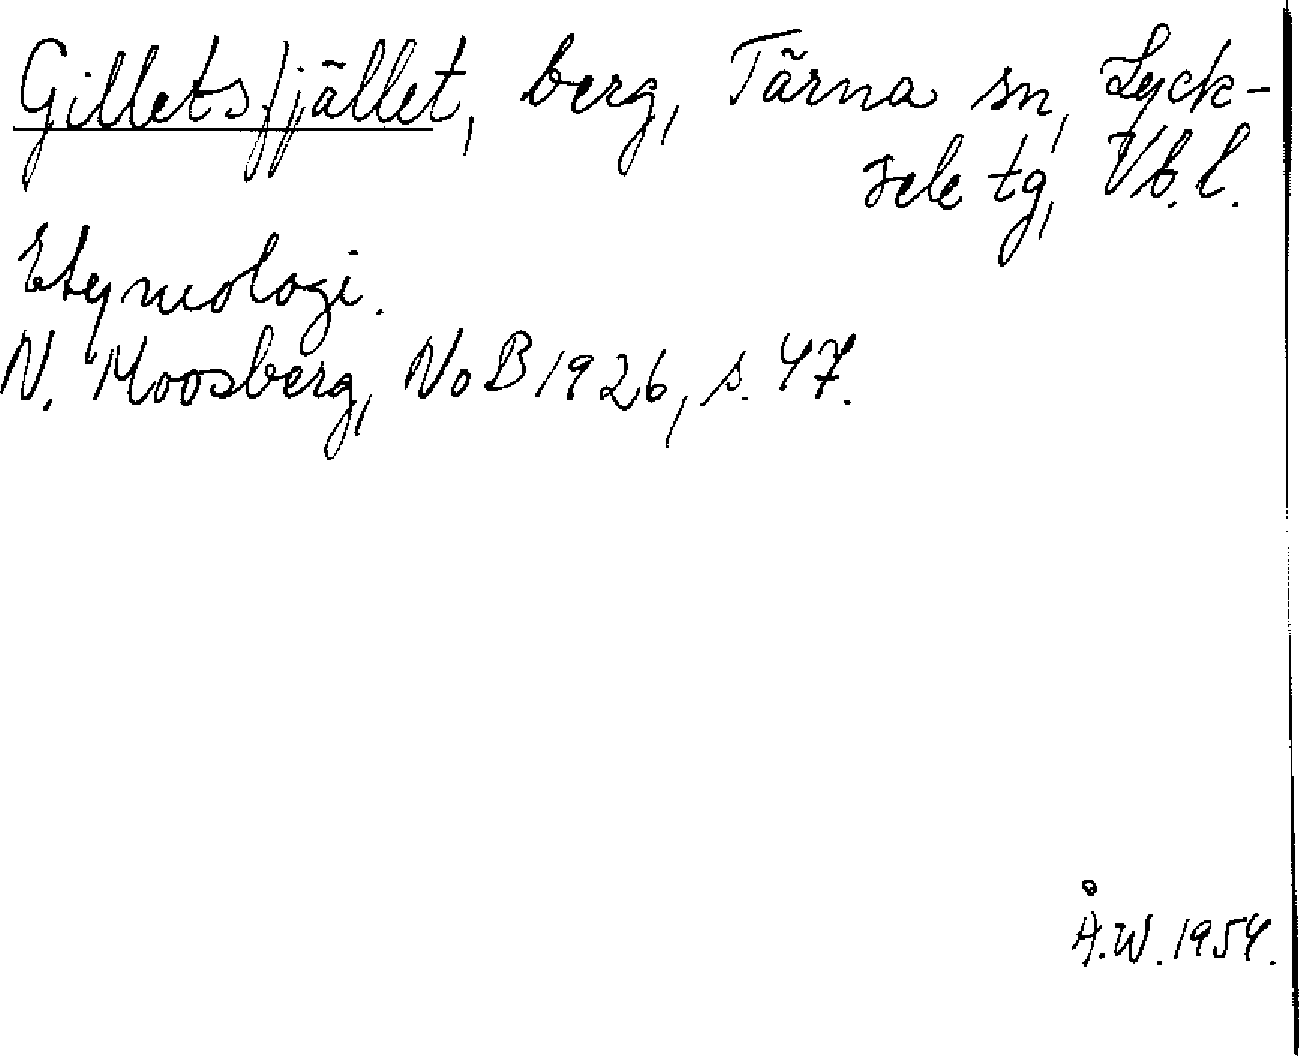 Gilletsfjället, berg, Tärna sn, Lyck-
sele tg, Vb. l.
Etymologi.
N. Moosberg, NoB 1926, s. 47.
Å.W. 1954.